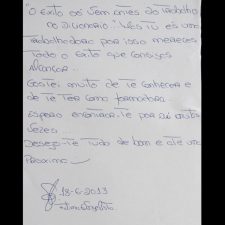 "O êxito só vem antes do trabalho
no dicionário". Mas tu és um
trabalhadora por isso mereces
todo o êxito que consigas
alcançar...
Gostei muito de te conhecer e
de te ter como formadora.
Espero encontrar-te por aí muitas
vezes...
Desejo-te tudo de bom e até uma
Próxima
18-6-2013